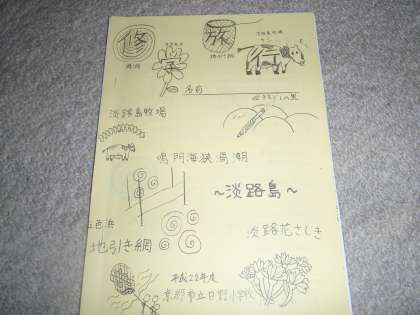 修学旅行
名前
淡路島牧場
鳴門海峡渦潮
～淡路島～
五色浜
地引き網
淡路花さじき
平成22年度
京都市立日野小学校